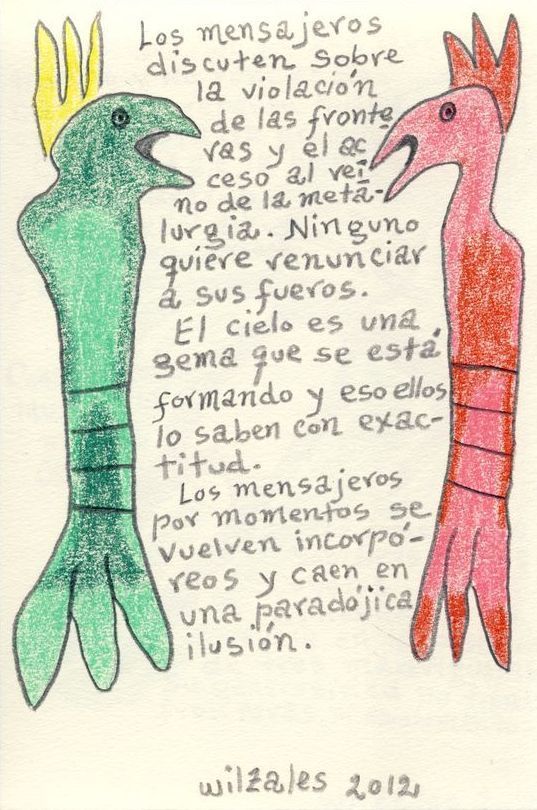 Los mensajeros
discuten sobre
la violación
de las fronte
ras y el ac
ceso al rei
no de la meta-
lurgia. Ninguno
quiere renunciar
a sus fueros.
El cielo es una
gema que se está
formando y eso ellos
lo saben con exac-
titud.
Los mensajeros
por momentos se
vuelven incorpó-
reos y caen en
una paradójica
ilusión.
wilzales 2012